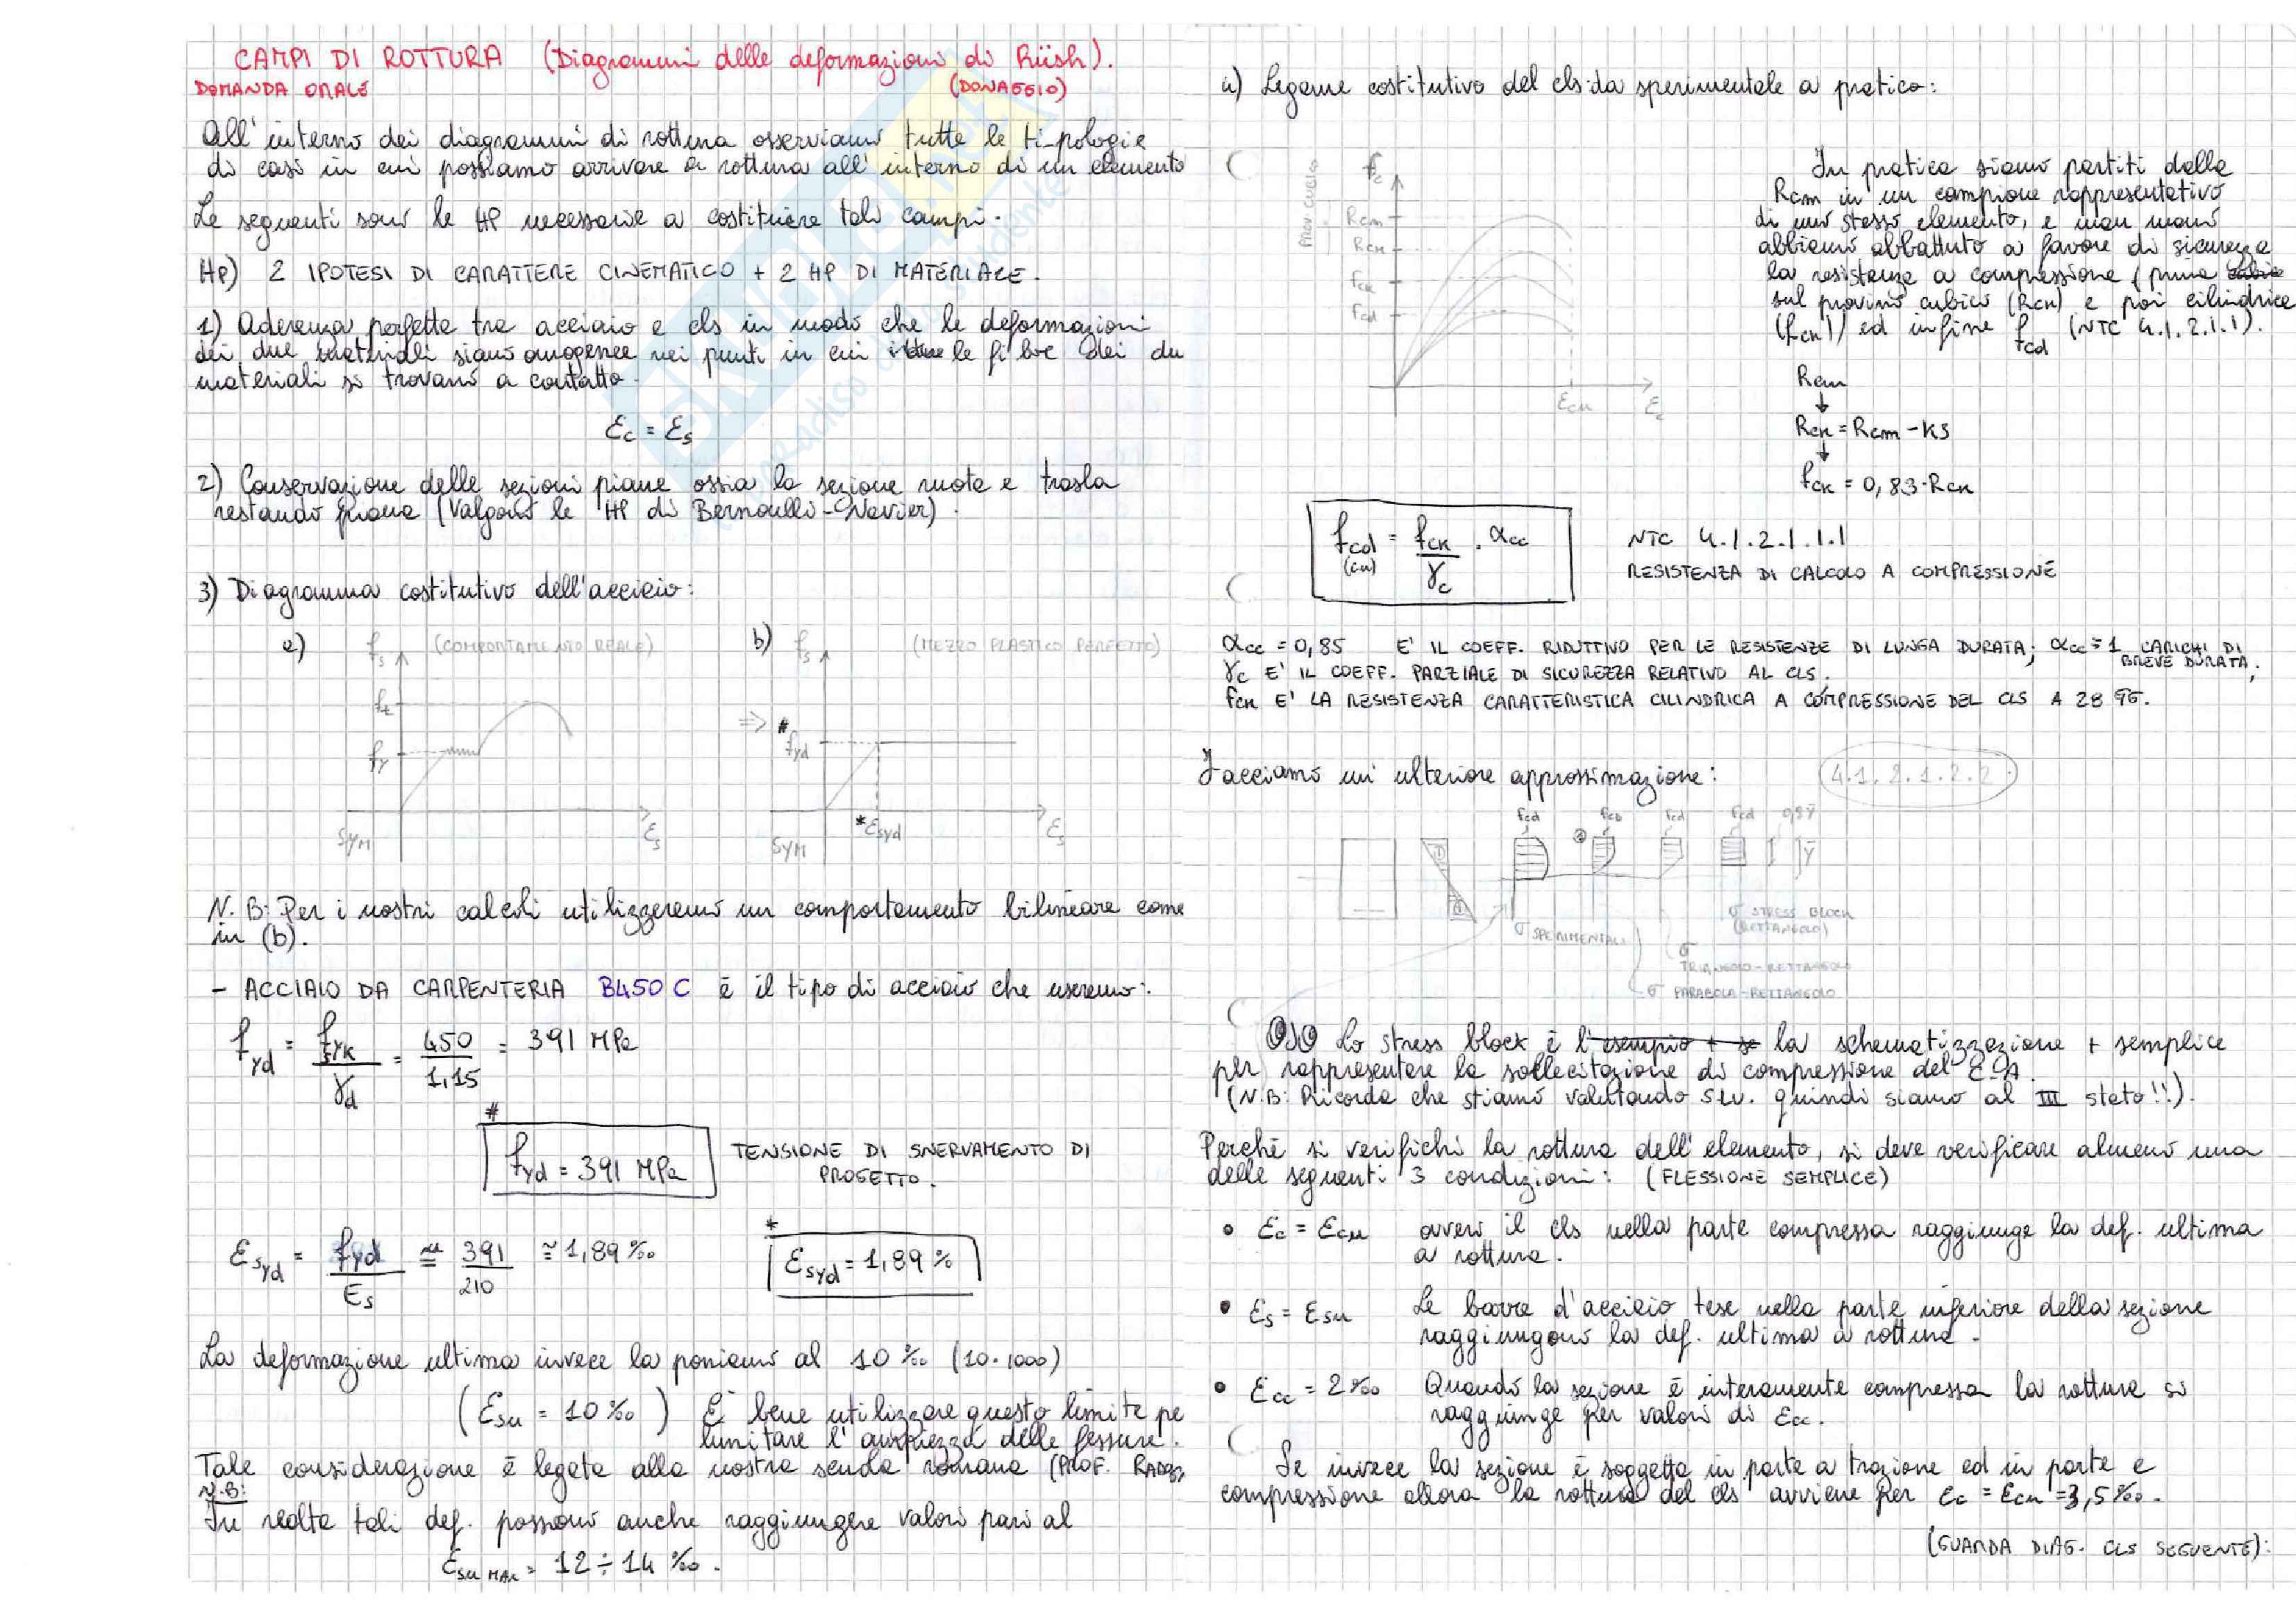 CAMPI DI ROTTURA (Diagrammi delle deformazioni di Rüsh).
DOMANDA ORALE (DONAGGIO)
All'interno dei diagrammi di rottura osserviamo tutte le tipologie
di casi in cui possiamo arrivare a rottura all'interno di un elemento
Le seguenti sono le HP necessarie a costituire tali campi.
HP) 2 IPOTESI DI CARATTERE CINEMATICO + 2 HP DI MATERIALE.
1) Aderenza perfetta tra acciaio e cls in modo che le deformazioni
dei due materiali siano omogenee nei punti in cui le fibre dei du
materiali si trovano a contatto.
εc = εs
2) Conservazione delle sezioni piane ossia la sezione ruota e trasla
restando piana (Valgono le HP di Bernoulli-Navier).
3) Diagramma costitutivo dell'acciaio:
a) fs (COMPORTAMENTO REALE)
ft
fy
SYM
εs
b) fs (MEZZO PLASTICO PERFETTO)
=> #
fyd
*εsyd
SYM
εs
N.B: Per i nostri calcoli utilizzeremo un comportamento bilineare come
in (b).
- ACCIAIO DA CARPENTERIA B450C è il tipo di acciaio che useremo:
fyd = fyk/γd = 450/1,15 = 391 MPa
#
fyd = 391 MPa TENSIONE DI SNERVAMENTO DI
PROGETTO.
εsyd = fyd/Es ≅ 391/210 ≅ 1,89 ‰
*
εsyd = 1,89 %
La deformazione ultima invece la poniamo al 10 ‰ (10·1000)
(εsu = 10 ‰) È bene utilizzare questo limite pe
limitare l'ampiezza delle fessure.
Tale considerazione è legata alla nostra scuola romana (PROF.
N.B:
In realtà tali def. possono anche raggiungere valori pari al
εsu MAX = 12 ÷ 14 ‰.
4) Legame costitutivo del cls: da sperimentale a pratico:
fc
Rcm
Rck
fck
fcd
εcu
εc
In pratica siamo partiti dalla
Rcm in un campione rappresentativo
di uno stesso elemento, e man mano
abbiamo abbattuto a favore di sicurezza
la resistenza a compressione (prima
sul provino cubico (Rck) e poi cilindrica
(fck)) ed infine fcd (NTC 4.1.2.1.1).
Rcm
↓
Rck = Rcm - ks
↓
fck = 0,83·Rck
fcd = fck/γc · αcc
(cu)
NTC 4.1.2.1.1.1
RESISTENZA DI CALCOLO A COMPRESSIONE
αcc = 0,85 E' IL COEFF. RIDUTTIVO PER LE RESISTENZE DI LUNGA DURATA; αcc = 1 CARICHI DI
BREVE DURATA;
γc E' IL COEFF. PARZIALE DI SICUREZZA RELATIVO AL CLS.
fck E' LA RESISTENZA CARATTERISTICA CILINDRICA A COMPRESSIONE DEL CLS A 28 GG.
Facciamo un'ulteriore approssimazione: 4.1.2.1.2.2
fcd fcd fcd fcd 0,8ȳ
ȳ
σ SPERIMENTALI
σ STRESS BLOCK
(RETTANGOLO)
σ
TRIANGOLO-RETTANGOLO
σ PARABOLA-RETTANGOLO
Lo stress block è l'esempio + se la schematizzazione + semplice
per rappresentare la sollecitazione di compressione del C.A.
(N.B: Ricorda che stiamo valutando SLU. quindi siamo al III stato!!).
Perchè si verifichi la rottura dell'elemento, si deve verificare almeno una
delle seguenti 3 condizioni: (FLESSIONE SEMPLICE)
• εc = εcu ovvero il cls nella parte compressa raggiunge la def. ultima
a rottura.
• εs = εsu Le barre d'acciaio tese nella parte inferiore della sezione
raggiungono la def. ultima a rottura.
• εcc = 2 ‰ Quando la sezione è interamente compressa la rottura si
raggiunge per valori di εcc.
Se invece la sezione è soggetta in parte a trazione ed in parte a
compressione allora la rottura del cls avviene per εc = εcu = 3,5 ‰.
(GUARDA DIAG. CLS SEGUENTE):